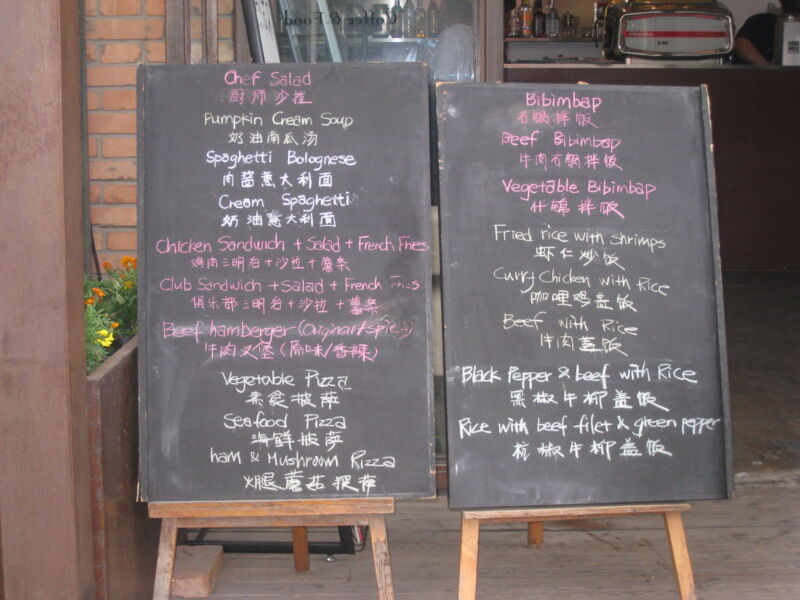 Coffee & Food
Chef Salad
厨师沙拉
Pumpkin Cream Soup
奶油南瓜汤
Spaghetti Bolognese
肉酱意大利面
Cream Spaghetti
奶油意大利面
Chicken Sandwich + Salad + French Fries
鸡肉三明治+沙拉+薯条
Club Sandwich + Salad + French Fries
俱乐部三明治+沙拉+薯条
Beef hamberger (Original/spicy)
牛肉汉堡(原味/香辣)
Vegetable Pizza
素食披萨
Seafood Pizza
海鲜披萨
ham & Mushroom Pizza
火腿蘑菇披萨
Bibimbap
石锅拌饭
Beef Bibimbap
牛肉石锅拌饭
Vegetable Bibimbap
什锦拌饭
Fried rice with shrimps
虾仁炒饭
Curry Chicken with Rice
咖哩鸡盖饭
Beef with Rice
牛肉盖饭
Black Pepper & beef with Rice
黑椒牛柳盖饭
Rice with beef filet & green pepper
杭椒牛柳盖饭